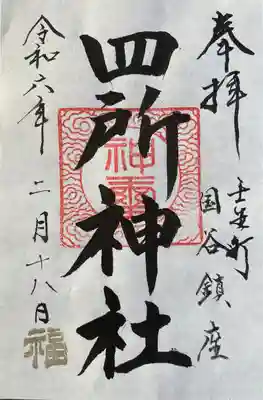 奉拝
壬生町
国谷鎮座
四所神社
神璽
令和六年
二月十八日
福